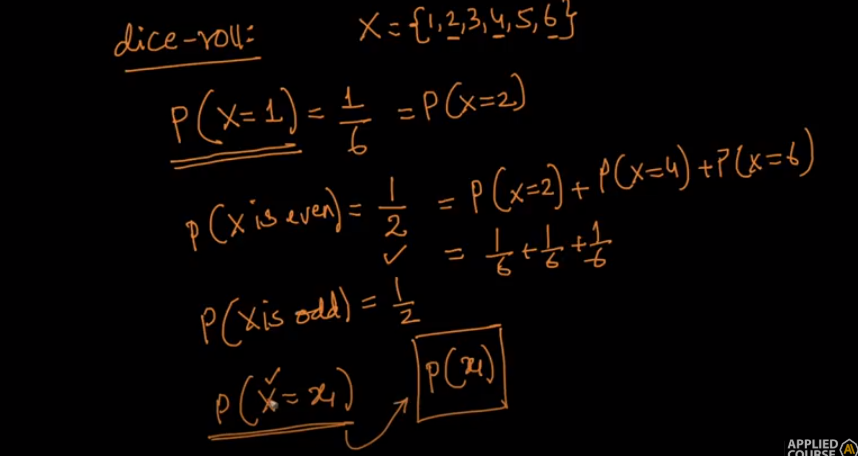 dice-roll: X = {1,2,3,4,5,6}
P(X=1) = 1/6 = P(X=2)
P(X is even) = 1/2 = P(X=2) + P(X=4) + P(X=6)
✓ = 1/6 + 1/6 + 1/6
P(X is odd) = 1/2
P(X = x₁) P(x₁)
APPLIED
COURSE